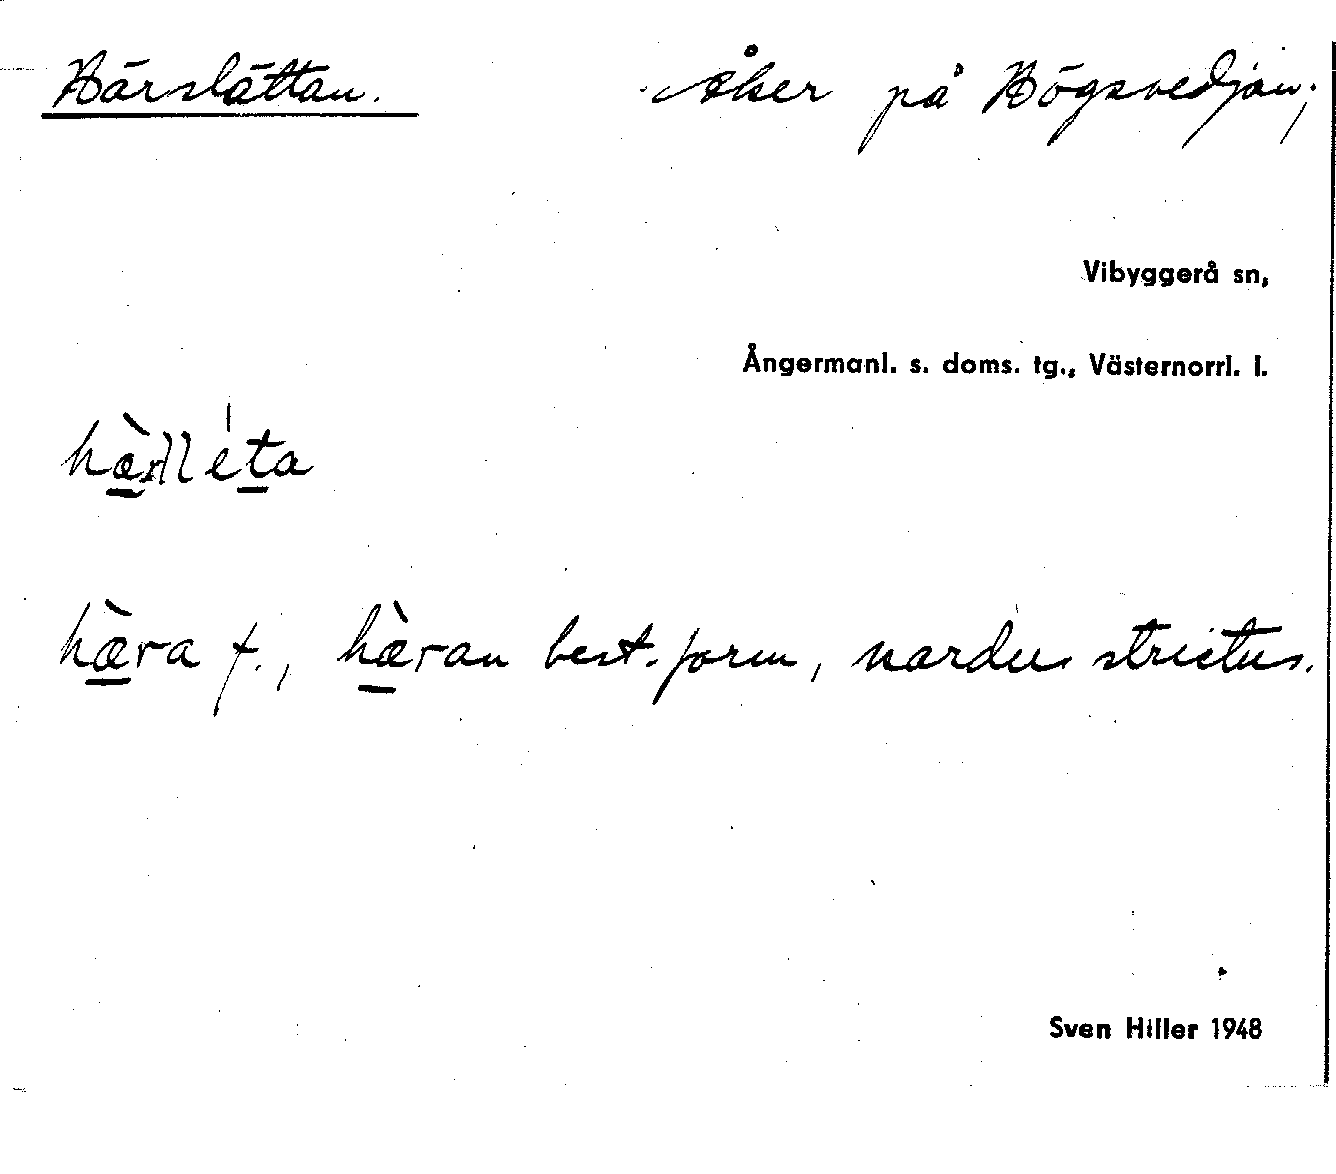 Härslåttan. Åker på Högsvedjan;
Vibyggerå sn,
Ångermanl. s. doms. tg., Västernorrl. l.
hæ̀ra f., hæ̀ran best. form, nardus strictus.
Sven Hiller 1948